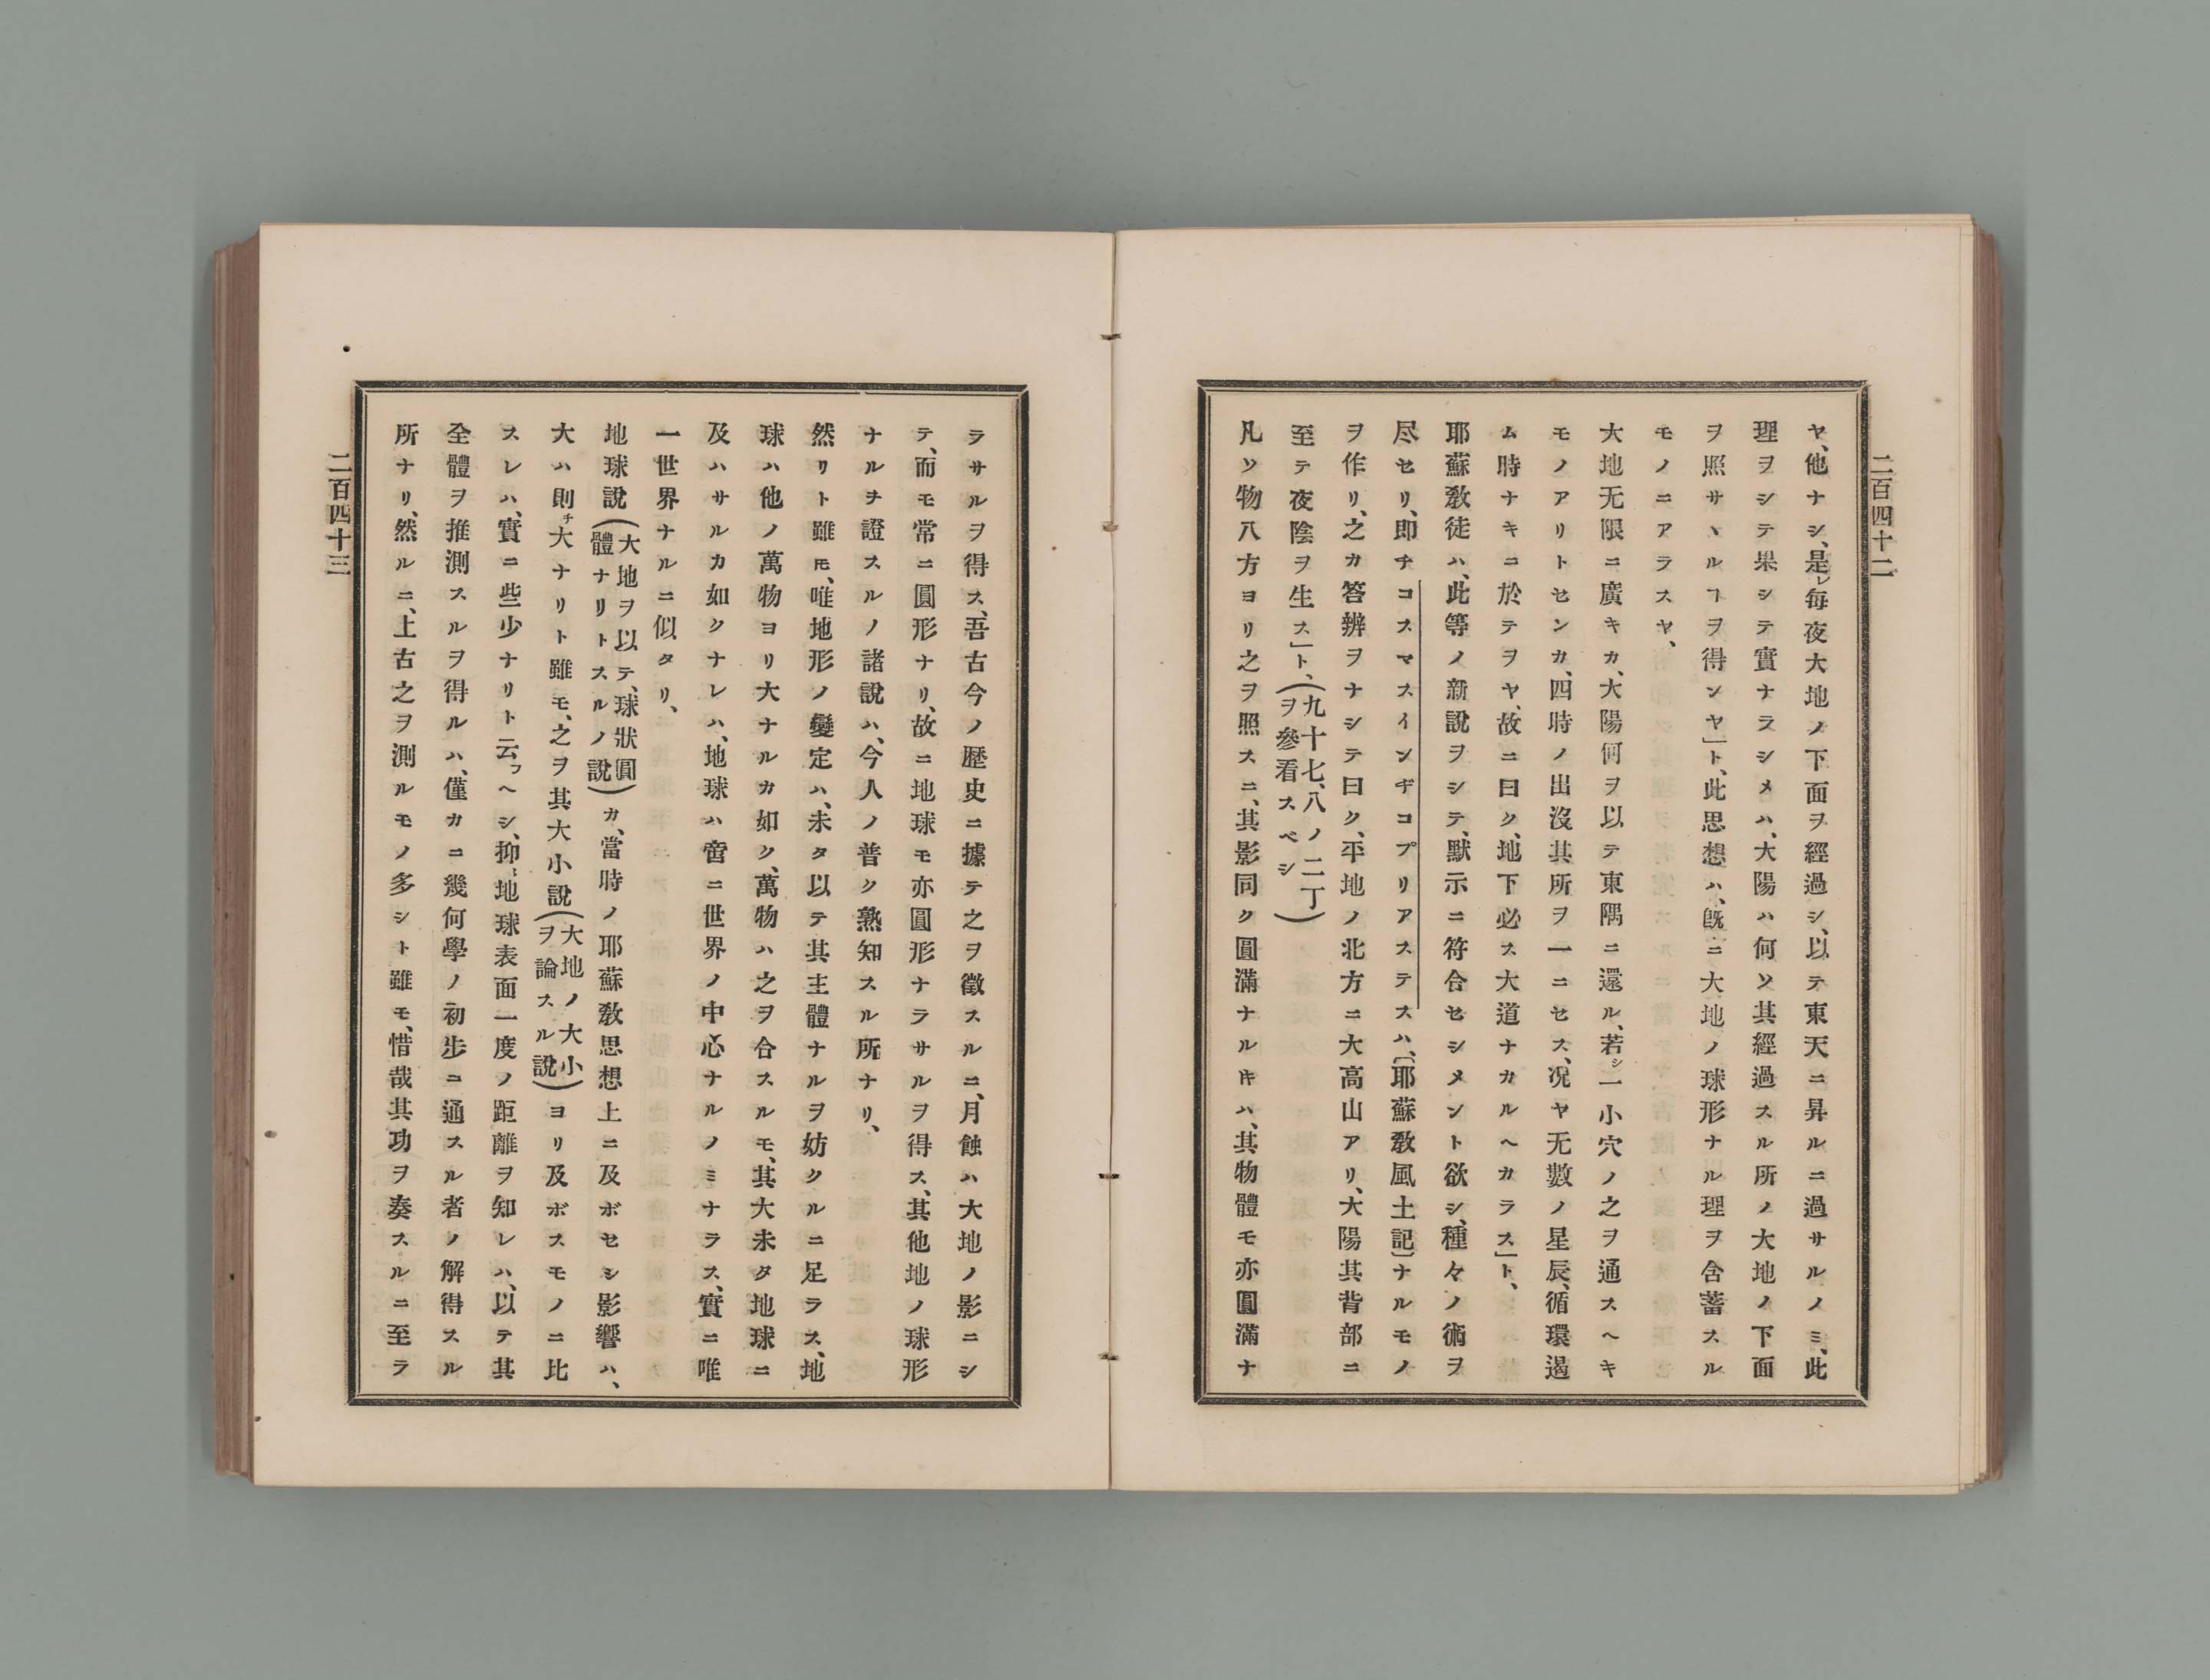 二百四十二
ヤ、他ナシ、是レ毎夜大地ノ下面ヲ經過シ、以テ東天ニ昇ルニ過サルノミ、此
理ヲシテ果シテ實ナラシメハ、大陽ハ何ソ其經過スル所ノ大地ノ下面
ヲ照サヽルヿヲ得ンヤ」ト、此思想ハ、既ニ大地ノ球形ナル理ヲ含蓄スル
モノニアラスヤ、
大地无限ニ廣キカ、大陽何ヲ以テ東隅ニ還ル、若シ一小穴ノ之ヲ通スヘキ
モノアリトセンカ、四時ノ出沒其所ヲ一ニセス、况ヤ无數ノ星辰、循環遏
ム時ナキニ於テヲヤ、故ニ曰ク、地下必ス大道ナカルヘカラス」ト、
耶蘇敎徒ハ、此等ノ新說ヲシテ、默示ニ符合セシメント欲シ、種々ノ術ヲ
尽セリ、即チコスマスインヂコプリアステスハ、〔耶蘇敎風土記〕ナルモノ
ヲ作リ、之カ答辨ヲナシテ曰ク、平地ノ北方ニ大高山アリ、大陽其背部ニ
至テ夜陰ヲ生ス」ト、(九十七、八ノ二丁ヲ參看スベシ)
凡ソ物八方ヨリ之ヲ照スニ、其影同ク圓滿ナルキハ、其物體モ亦圓滿ナ
ラサルヲ得ス、吾古今ノ歷史ニ據テ之ヲ徵スルニ、月蝕ハ大地ノ影ニシ
テ、而モ常ニ圓形ナリ、故ニ地球モ亦圓形ナラサルヲ得ス、其他地ノ球形
ナルヲ證スルノ諸說ハ、今人ノ普ク熟知スル所ナリ、
然リト雖𪜈、唯地形ノ變定ハ、未タ以テ其主體ナルヲ妨クルニ足ラス、地
球ハ他ノ萬物ヨリ大ナルカ如ク、萬物ハ之ヲ合スルモ、其大未タ地球ニ
及ハサルカ如クナレハ、地球ハ啻ニ世界ノ中心ナルノミナラス、實ニ唯
一世界ナルニ似タリ、
地球說(大地ヲ以テ、球狀圓體ナリトスルノ說)カ、當時ノ耶蘇敎思想上ニ及ボセシ影響ハ、
大ハ則チ大ナリト雖モ、之ヲ其大小說(大地ノ大小ヲ論スル說)ヨリ及ボスモノニ比
スレハ、實ニ些少ナリト云フヘシ、抑、地球表面一度ノ距離ヲ知レハ、以テ其
全體ヲ推測スルヲ得ルハ、僅カニ幾何學ノ初步ニ通スル者ノ解得スル
所ナリ、然ルニ、上古之ヲ測ルモノ多シト雖モ、惜哉其功ヲ奏スルニ至ラ
二百四十三